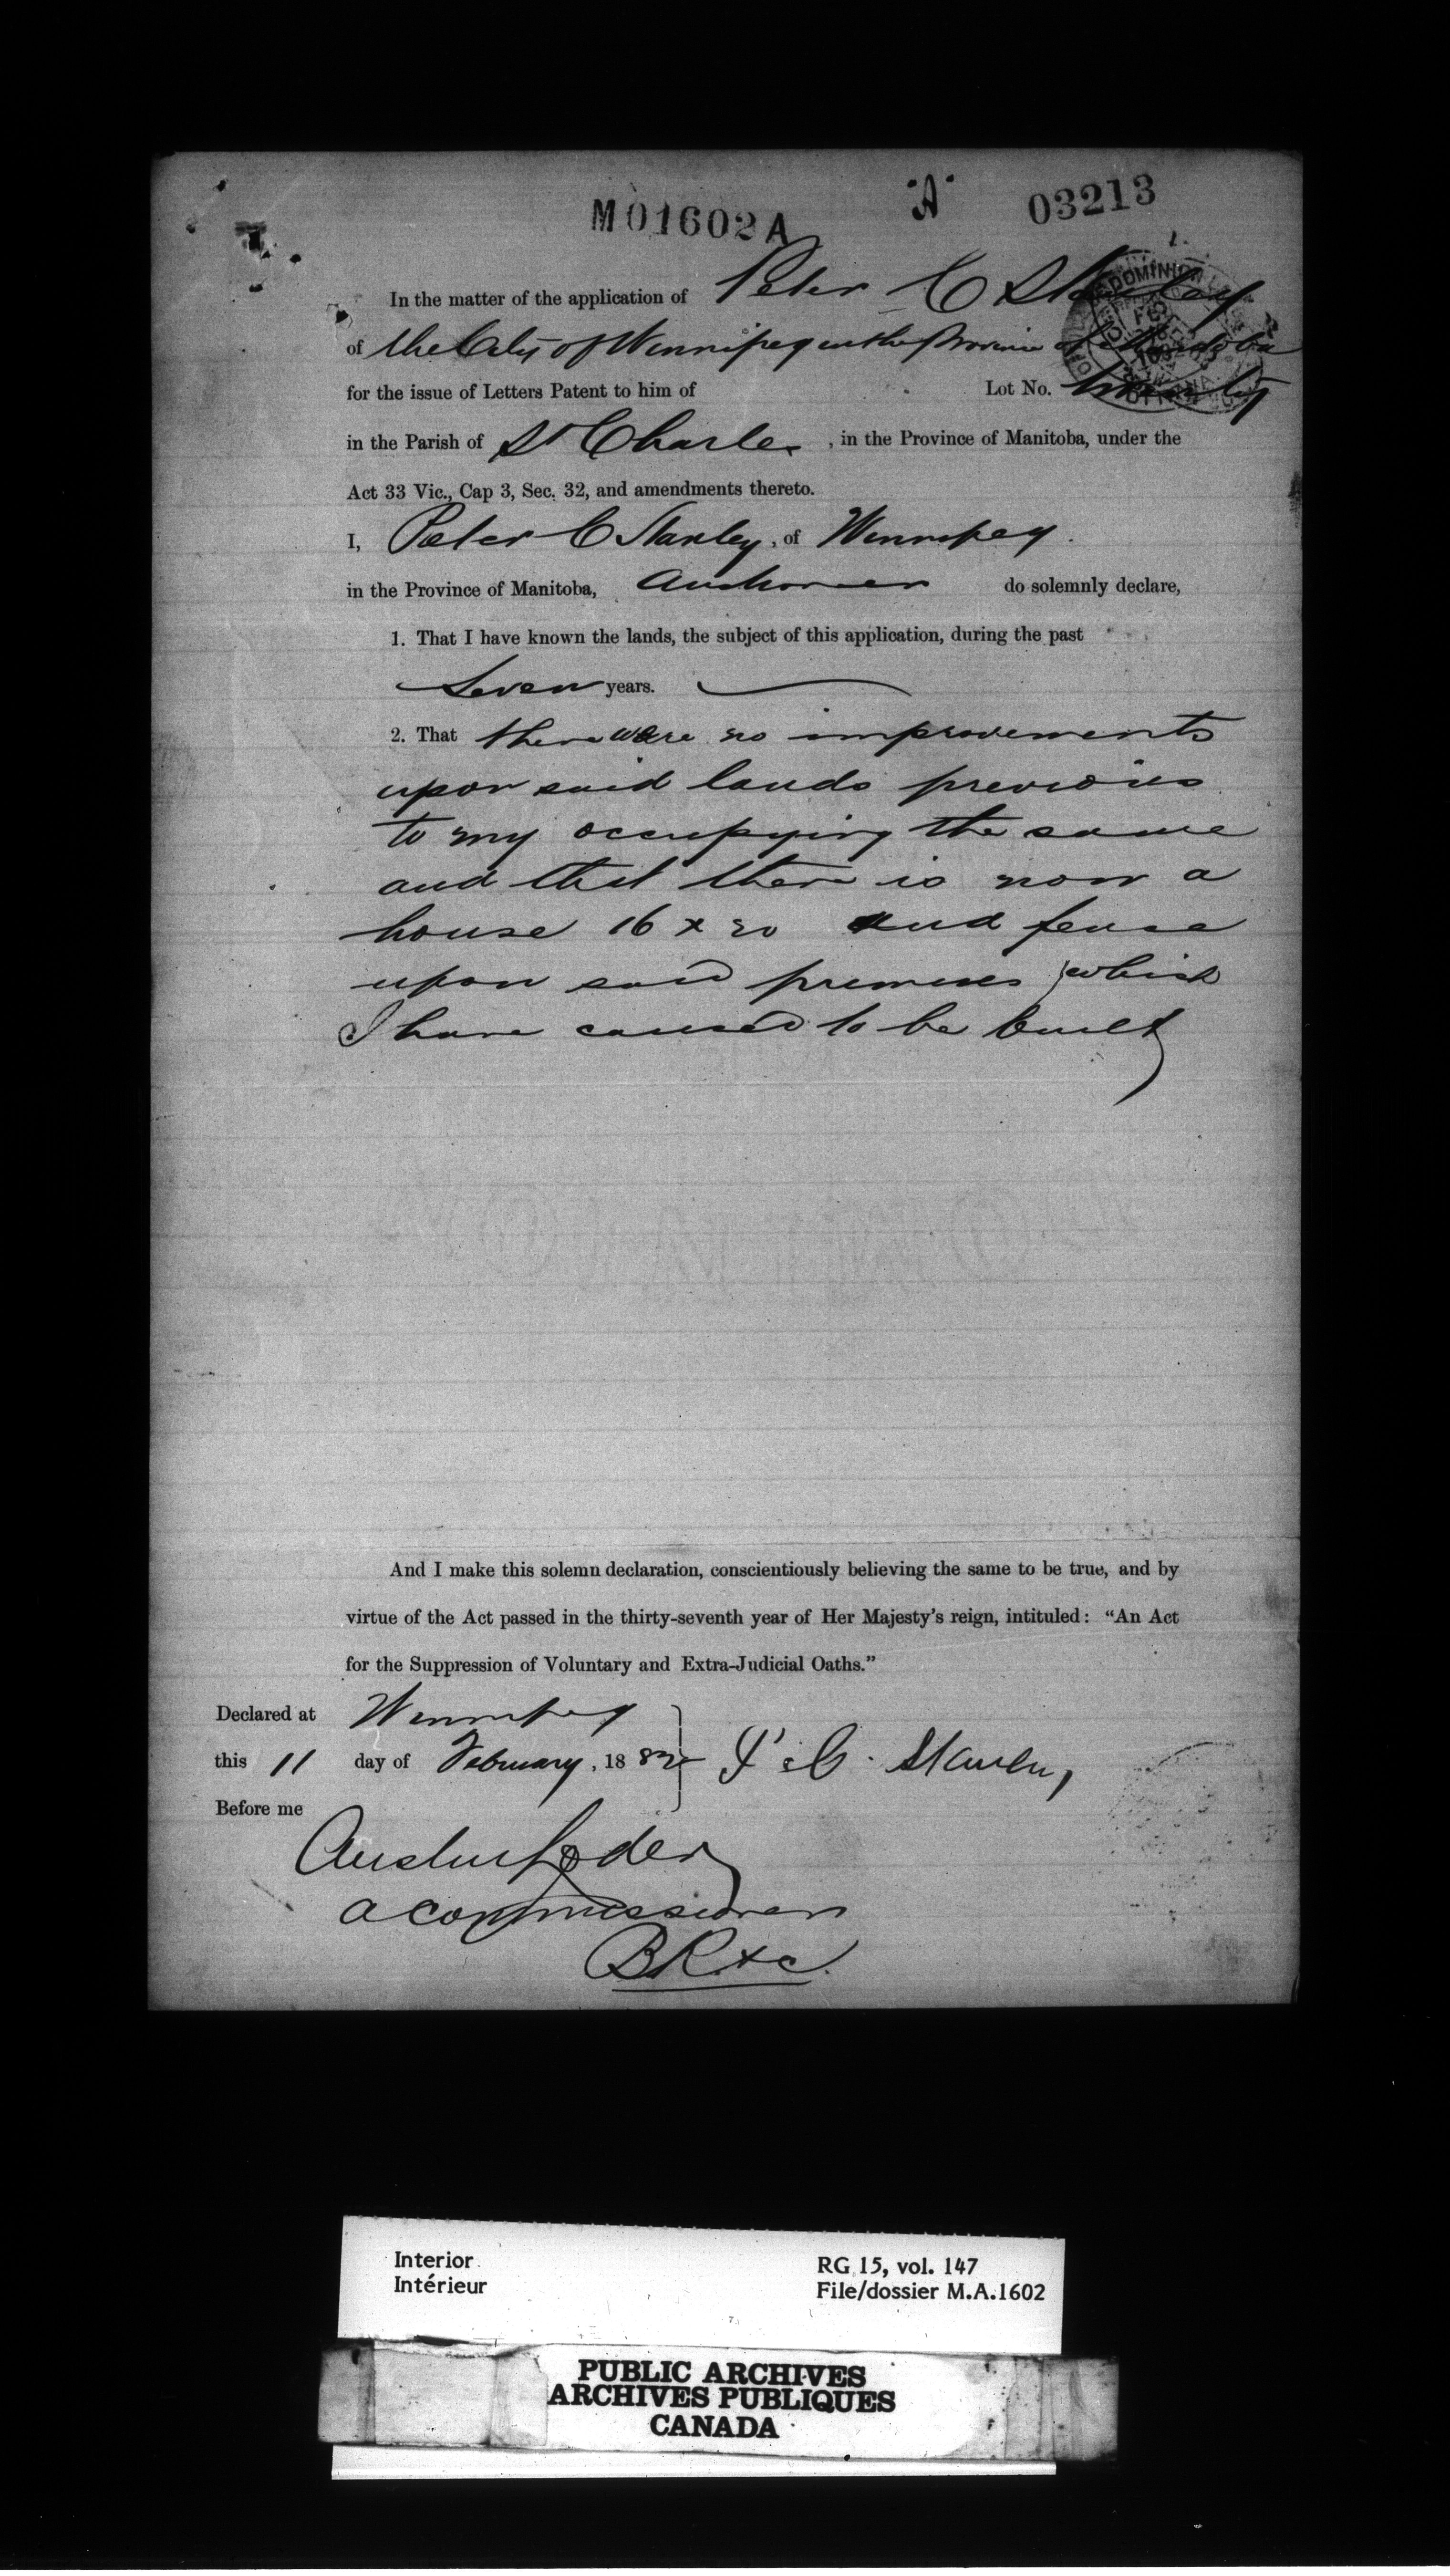 M01602A "A" 03213
In the matter of the application of Peter C Stanley
of the City of Winnipeg in the Province of Manitoba
for the issue of Letters Patent to him of Lot No. twenty
in the Parish of St Charles, in the Province of Manitoba, under the
Act 33 Vic., Cap 3, Sec. 32, and amendments thereto.
I, Peter C Stanley, of Winnipeg.
in the Province of Manitoba, do solemnly declare,
1. That I have known the lands, the subject of this application, during the past
Seven years.
2. That there were no improvements
upon said lands previous
to my occupying the same
and that there is now a
house 16 x 20 and fence
upon said premises which
I have caused to be built
And I make this solemn declaration, conscientiously believing the same to be true, and by
virtue of the Act passed in the thirty-seventh year of Her Majesty's reign, intituled: "An Act
for the Suppression of Voluntary and Extra-Judicial Oaths."
Declared at Winnipeg
this 11 day of February, 1882 P. C. Stanley
Before me
a Commissioner
B.R. &c.
Interior
Intérieur
RG 15, vol. 147
File/dossier M.A.1602
PUBLIC ARCHIVES
ARCHIVES PUBLIQUES
CANADA